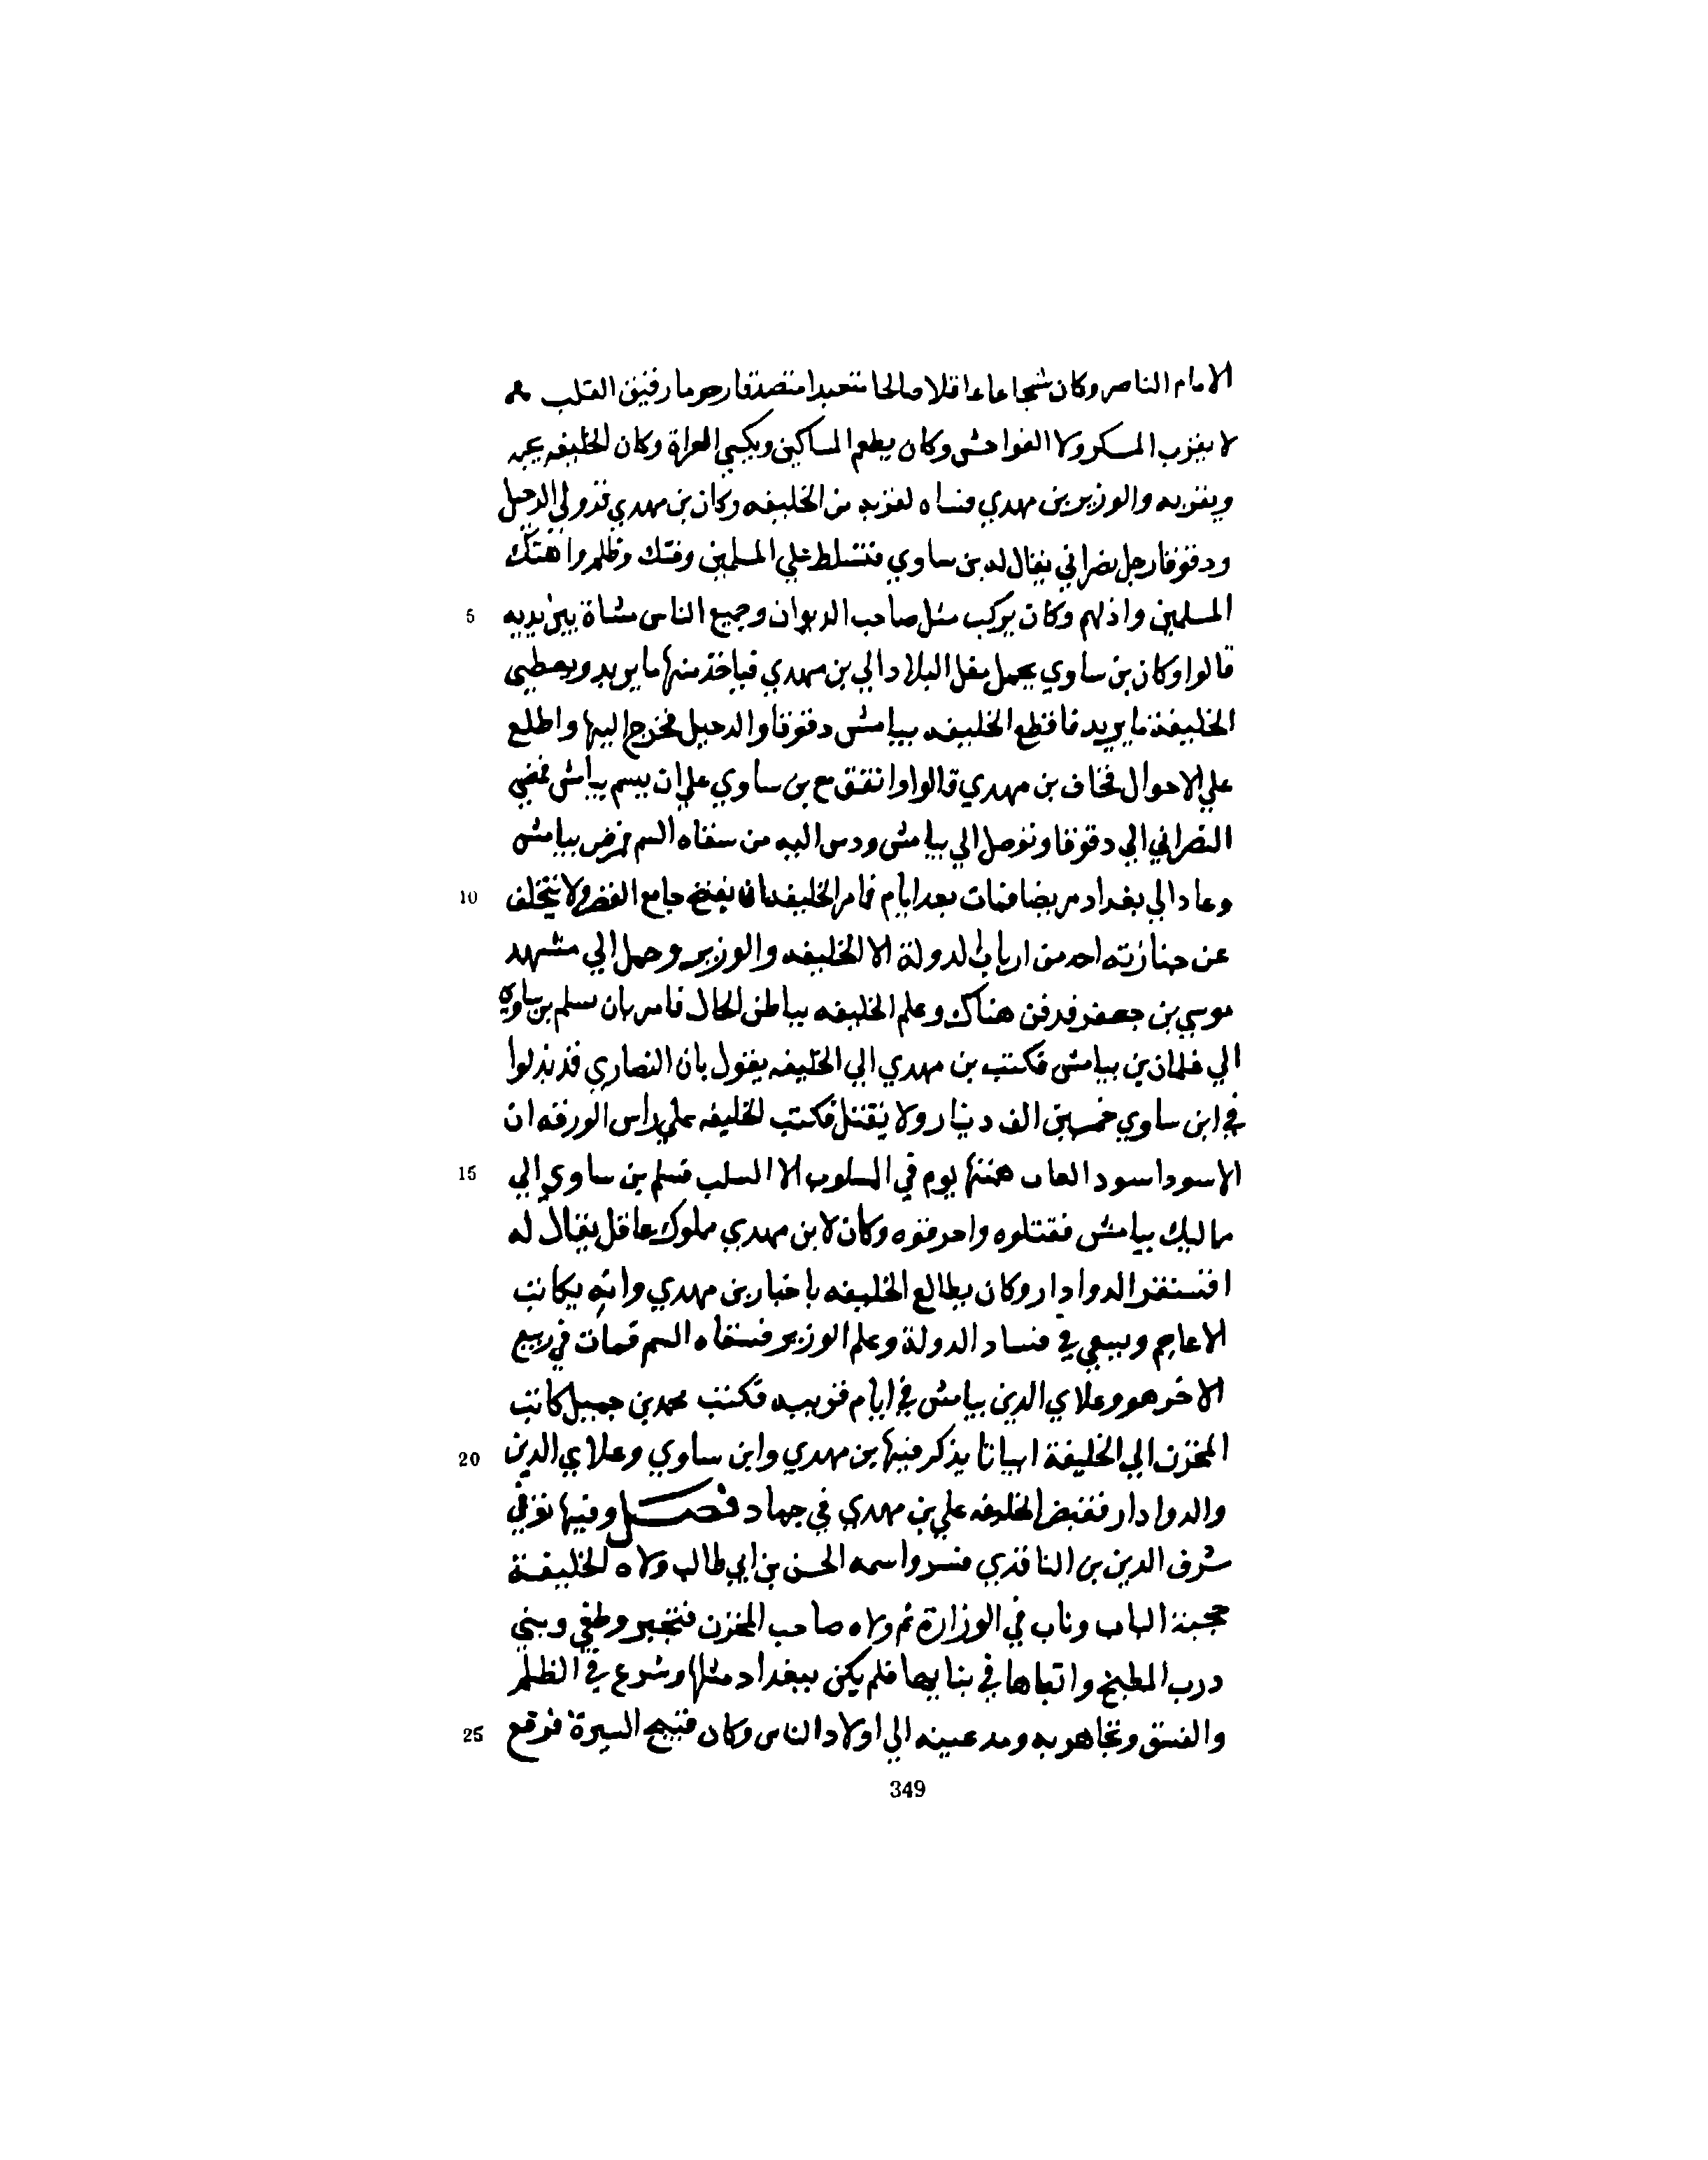 الامام الناصر وكان شجاعا عاقلا صالحا متعبدا متصدقا رحوما رقيق القلب
لا يقرب المسكر ولا الفواحش وكان يطعم المساكين ويكسي العراة وكان الخليفه يحبه
ويقربه والوزير بن مهدي فساه لقربه من الخليفه وكان بن مهدي قد ولي الدجيل
ودقوقا رجل نصراني يقال له بن ساوي فتسلط علي المسلمين وفتك وظلم وا هتك
5 المسلمين واذلهم وكان يركب مثل صاحب الديوان وجميع الناس مشاة بين يديه
قالوا وكان بن ساوي يحمل مغل البلاد الي بن مهدي فياخذ منها ما يريد ويعطي
الخليفة ما يريد فاقطع الخليفه بيامش دقوقا والدجيل فخرج اليها واطلع
علي الاحوال فخاف بن مهدي قالوا واتفق مع بن ساوي علي ان يسم بيامش فمضي
النصراني الي دقوقا وتوصل الي بيامش ودس اليه من سقاه السم فمرض بيامش
10 وعاد الي بغداد مريضا فمات بعد ايام فامر الخليفه ان يفتح جامع القصر ولا يتخلف
عن جنازته احد من ارباب الدولة الا الخليفه والوزير وحمل الي مشهد
موسي بن جعفر فدفن هناك وعلم الخليفه بباطن الحال فامر بان يسلم بن ساوي
الي غلمان بن بيامش فكتب بن مهدي الي الخليفه يقول بان النصاري قد بذلوا
في ابن ساوي خمسين الف دينار ولا يقتل فكتب الخليفه علي راس الورقه ان
15 الاسود اسود الغاب همتها يوم في المسلوب الا السلب فسلم بن ساوي الي
مماليك بيامش فقتلوه واحرقوه وكان لابن مهدي مملوك عاقل يقال له
اقسنقر الدوادار وكان يطالع الخليفه باخبار بن مهدي وانه يكاتب
الاعاجم ويسعي في فساد الدولة وعلم الوزير فسقاه السم فمات في ربيع
الاخر هو وعلاي الدين بيامش في ايام قريبه فكتب محمد بن جميل كاتب
20 المخزن الي الخليفة ابياتا يذكر فيها بن مهدي وابن ساوي وعلاي الدين
والدوادار فقبض الخليفه علي بن مهدي في جماد فصل وفيها توفي
شرف الدين بن الناقدي منسر واسمه الحسن بن ابي طالب ولاه الخليفة
حجبة الباب وناب في الوزارة ثم ولاه صاحب المخزن فتجبر وطغي وبني
درب المطبخ واتباها في بنايها فلم يكن ببغداد مثلها وشرع في الظلم
25 والفسق وتجاهر به ومد عينه الي اولاد الناس وكان قبيح السيرة فوقع
349